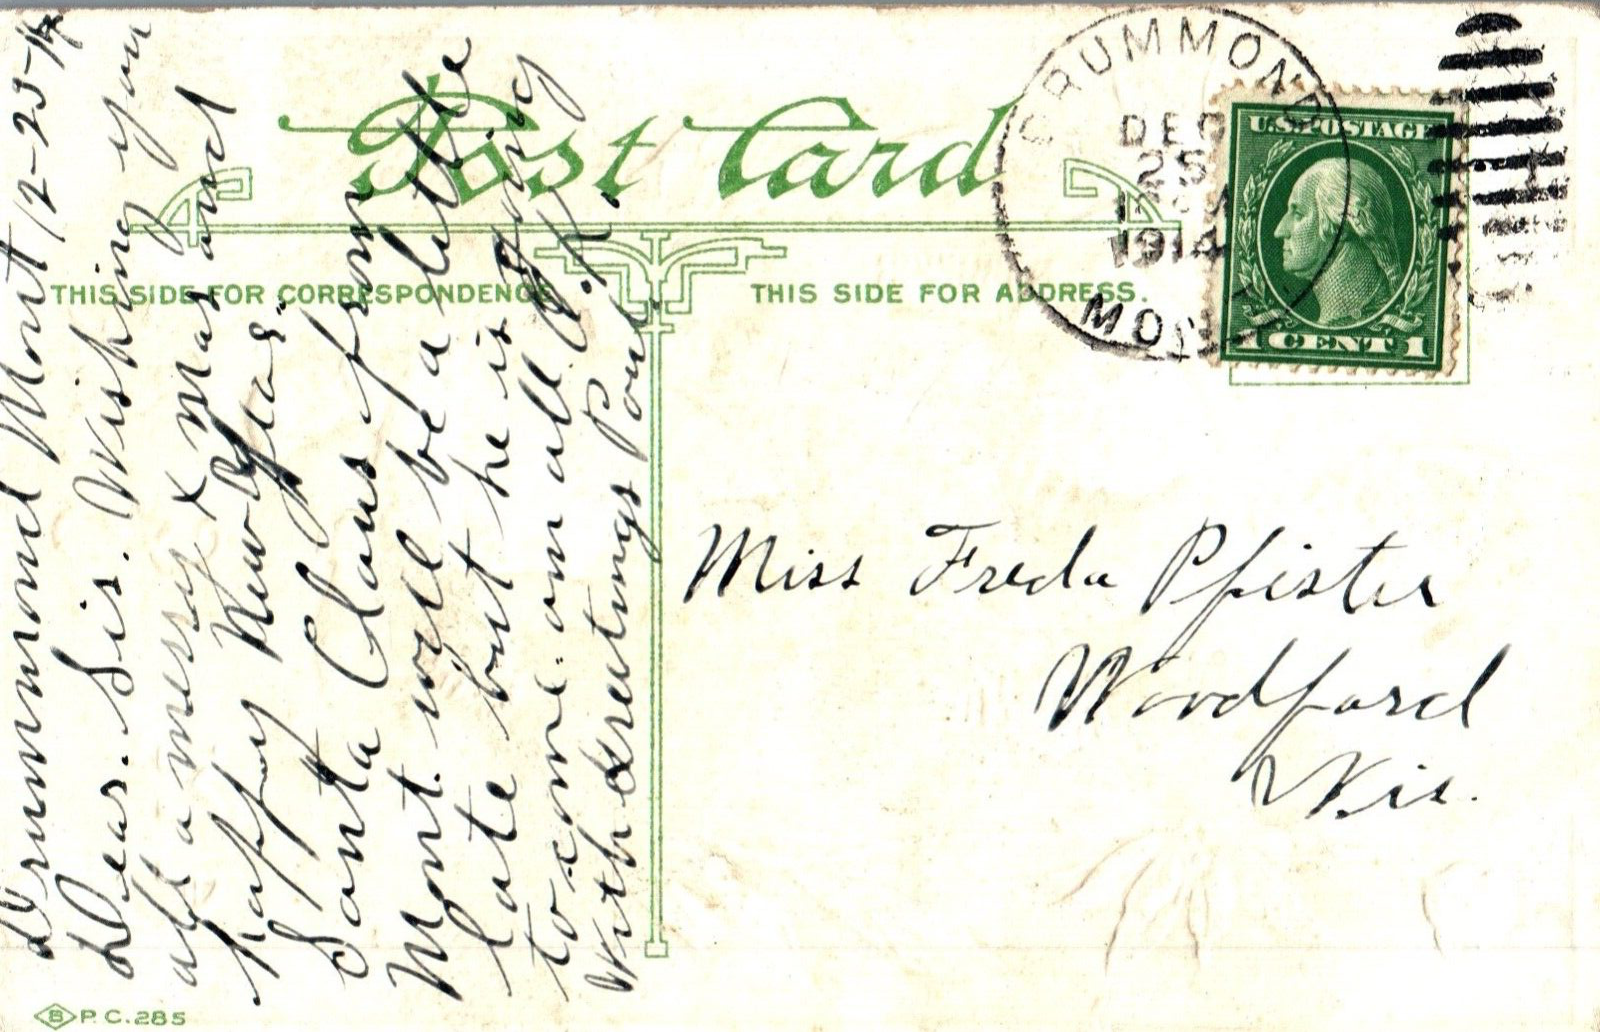 Post Card
THIS SIDE FOR CORRESPONDENCE
THIS SIDE FOR ADDRESS.
DRUMMOND
DEC
25
1914
MONT
U.S. POSTAGE
1 CENT 1
Drummond Mont 12-25-14
Dear. Sis. Wishing you
all a mery X mas and
happy New Year.
Santa Claus from
Mont. will be a little
late but he is going
to come. am all O.K.
With Greetings Paul.
Miss Freda Pfister
Woodford
Wis.
S P.C. 285